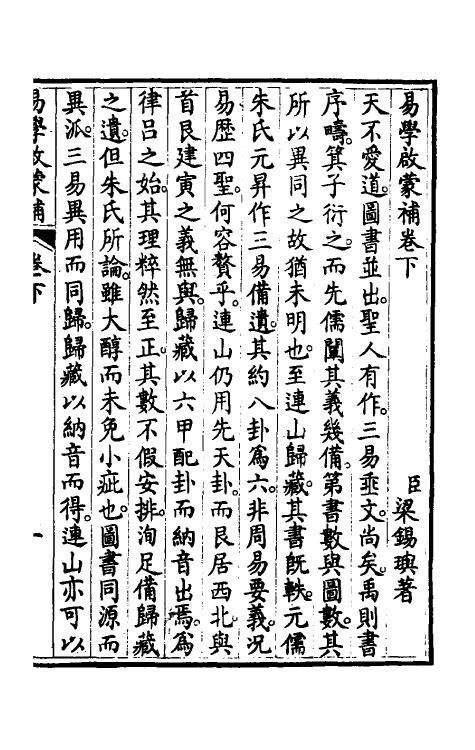 易學啟蒙補卷下
臣梁錫璵著
天不愛道。圖書並出。聖人有作。三易垂文。尚矣。禹則書
序疇。箕子衍之。而先儒闡其義幾備。第書數與圖數。其
所以異同之故猶未明也。至連山歸藏。其書旣軼。元儒
朱氏元昇作三易備遺。其約八卦爲六。非周易要義。況
易歷四聖。何容贅乎。連山仍用先天卦。而艮居西北。與
首艮建寅之義無與。歸藏以六甲配卦而納音出焉。爲
律呂之始。其理粹然至正。其數不假安排。洵足備歸藏
之遺。但朱氏所論。雖大醇而未免小疵也。圖書同源而
異派。三易異用而同歸。歸藏以納音而得。連山亦可以
易學啟蒙補
卷下
一